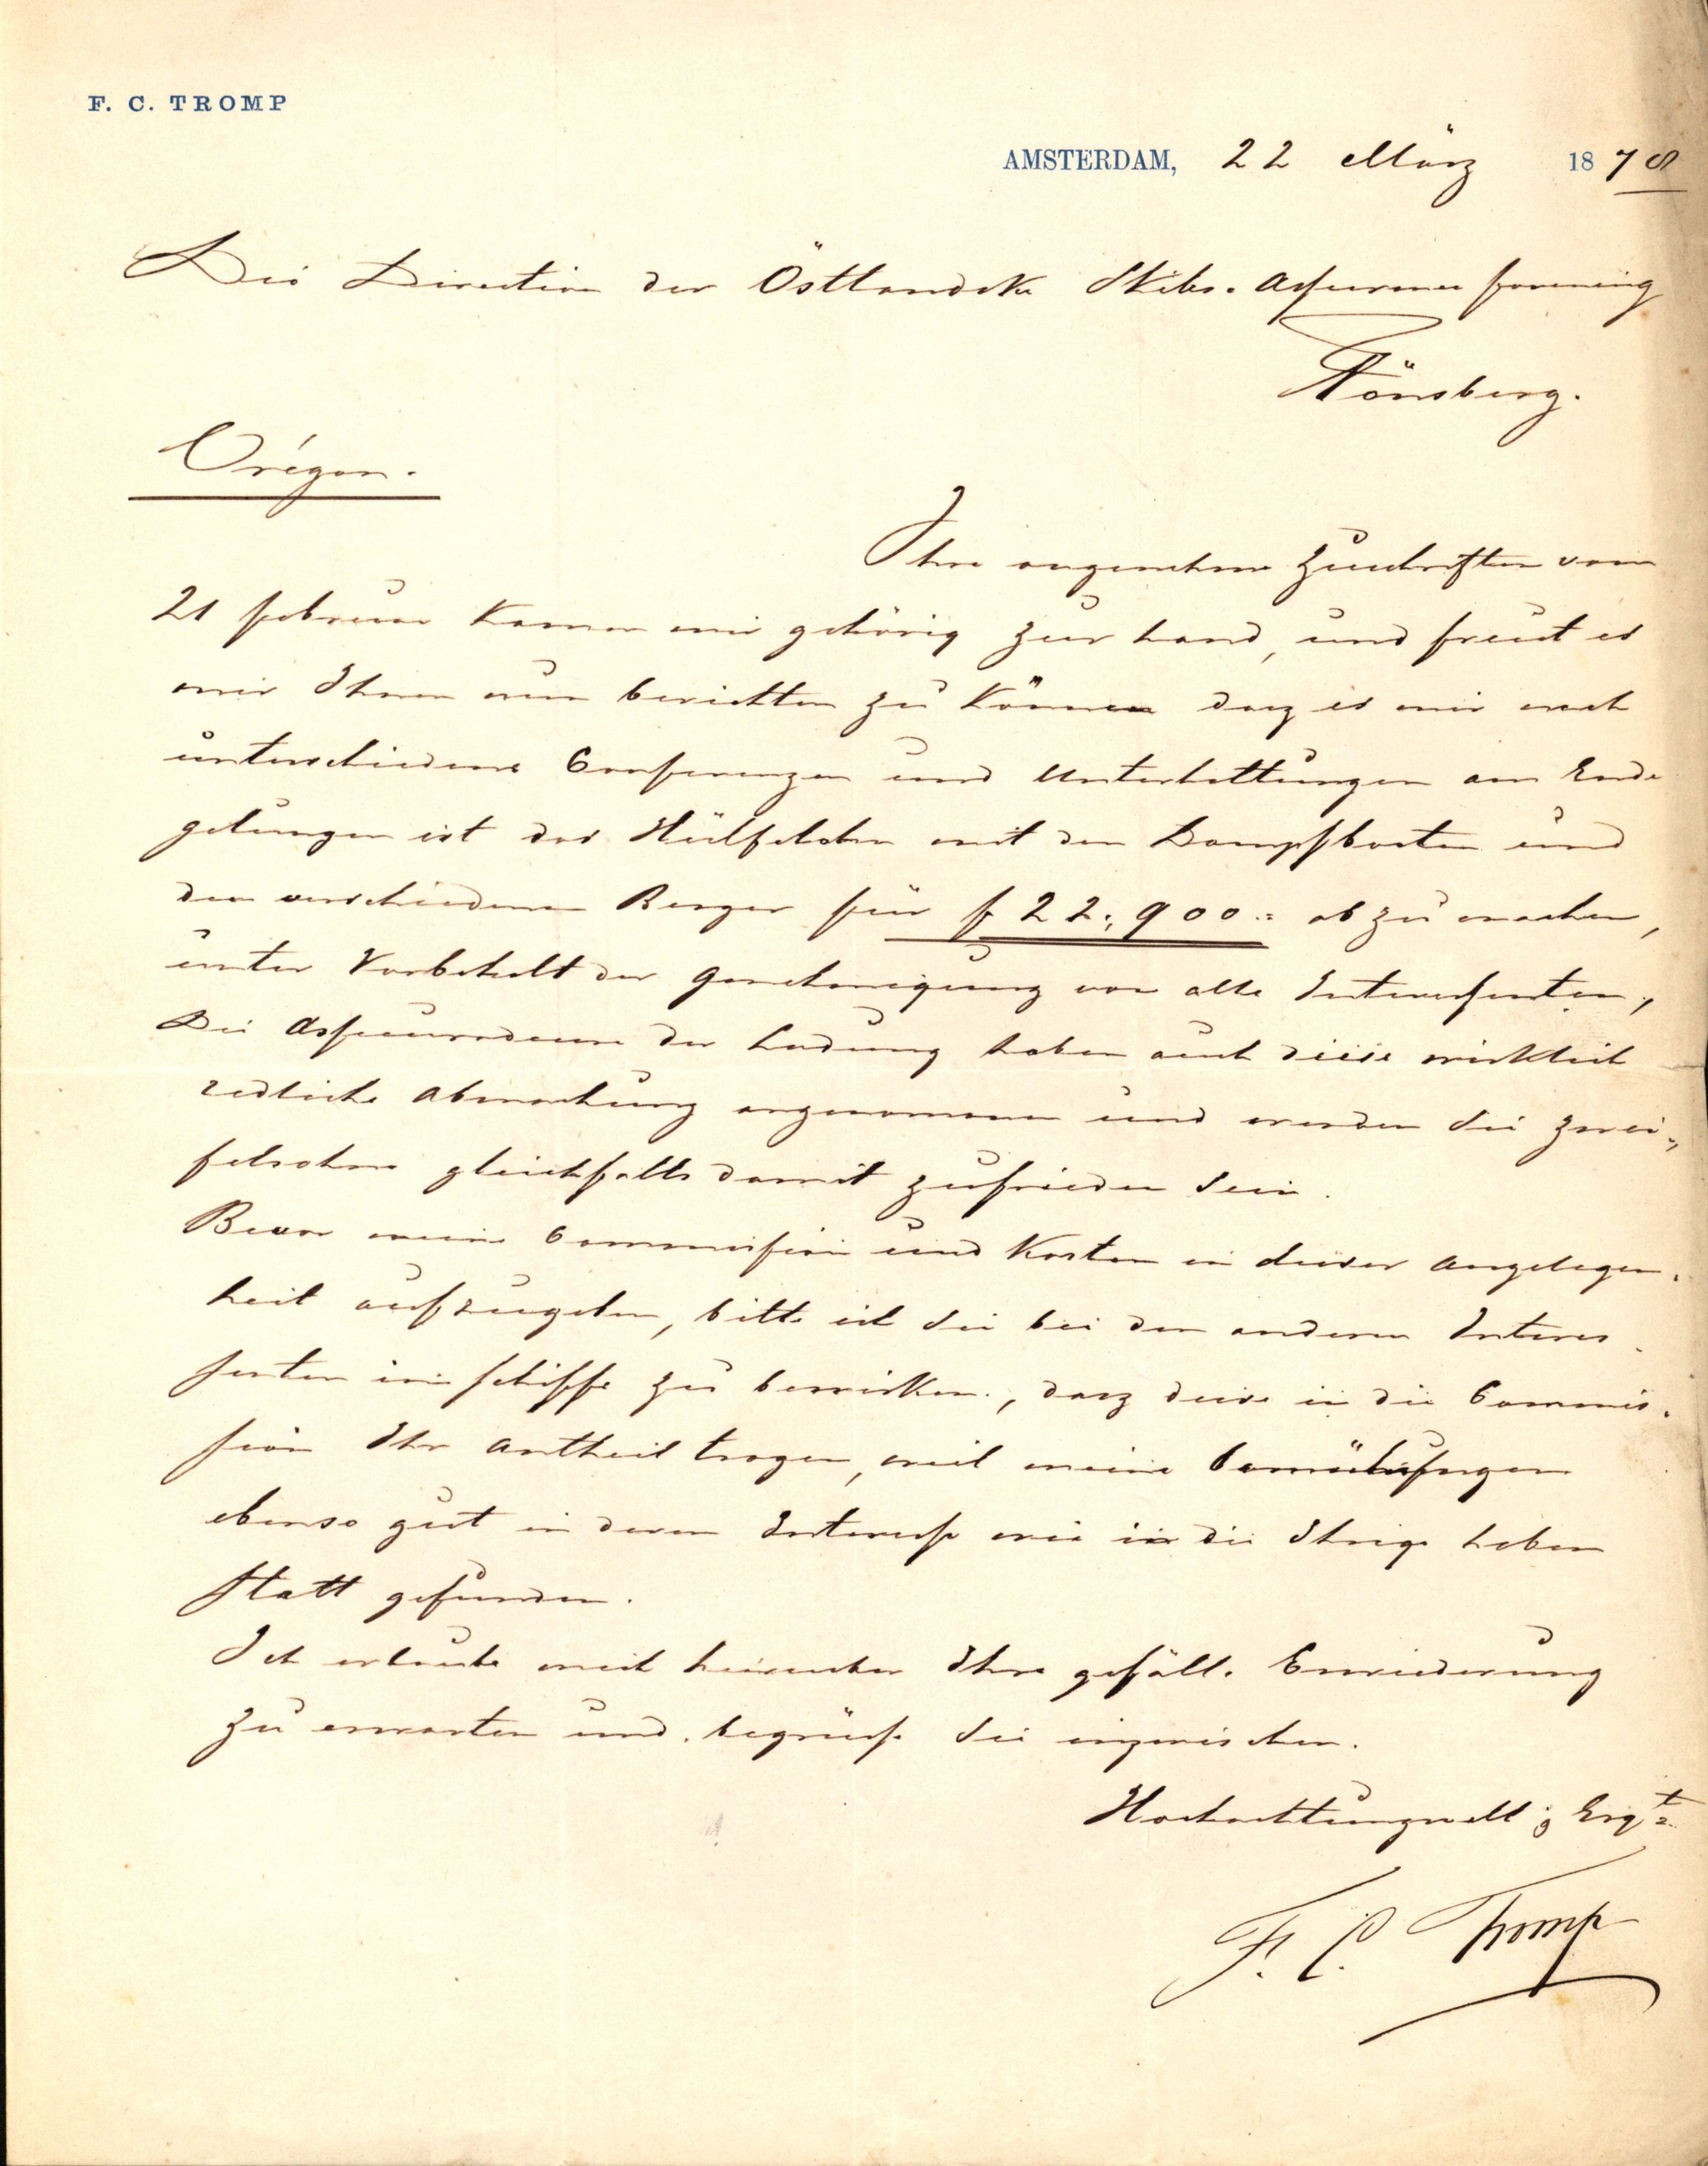 F. C. TROMP
AMSTERDAM, 22 März 1878
Die Direction der Östlandske Skibs-Assurance forening
Tönsberg.
Orégon.
Ihre angenehme Zuschriften vom
21 februar kamen mir gehörig zur hand, und freut es
mir Ihnen nun berichten zu können dasz es mir nach
unterschiedene Conferenzen und Unterhaltungen am Ende
gelungen ist das Hülfslohn mit den Dampfbooten und
den verschiedenen Berger für f 22,900.= ab zu machen,
unter Vorbehalt der Genehmigung von alle Interessenten,
Die Assecuradeure der Ladung haben auch diese wirklich
redliche Abmachung angenommen und werden Sie zwei=
felsohne gleichfalls damit zufrieden sein.
Bevor meine Commission und Kosten in dieser Angelegen-
heit aufzugeben, bitte ich Sie bei den anderen Interes-
senten im schiffe zu bewirken, dasz diese in die Commis-
sion Ihr Antheil tragen, weil meine
ebenso gut in deren Interesse wie in die Ihrige haben
statt gefunden.
Ich erlaube mich hierueber Ihre gefäll. Erwiederung
zu erwarten und begrüsse Sie inzwischen.
Hochachtungsvoll & Ergt
F. C. Tromp